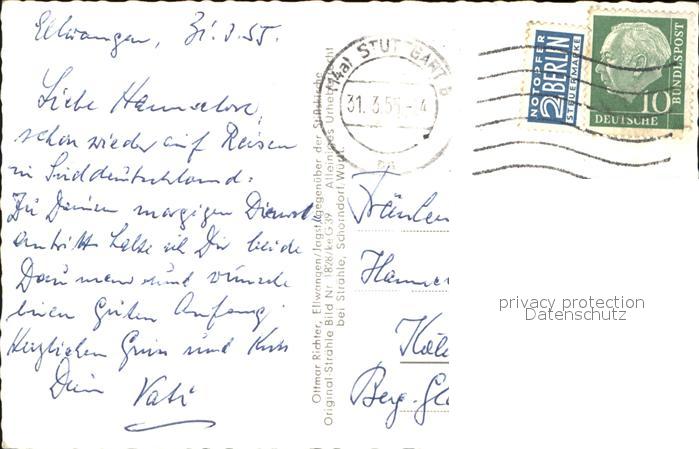 Ellwangen, 31.3.55.
Liebe Hannelore,
schon wieder auf Reisen
in Süddeutschland.
Zu Deinem morgigen Dienst-
antritt halte ich Dir beide
Daumen und wünsche
einen guten Anfang.
Herzlichen Gruss und Kuss
Dein Vati
(14a) STUTTGART 8
31.3.55.-4
NOTOPFER
2 BERLIN
STEUERMARKE
DEUTSCHE
BUNDESPOST
10
Ottmar Richter, Ellwangen/Jagst, gegenüber der Stiftkirche
Original-Strähle Bild Nr. 1828/keG39 Alleiniges Urheberrecht
bei Strähle, Schorndorf/Württ.
Fräulein
Hanne
Köl
Berg. Gl
privacy protection
Datenschutz